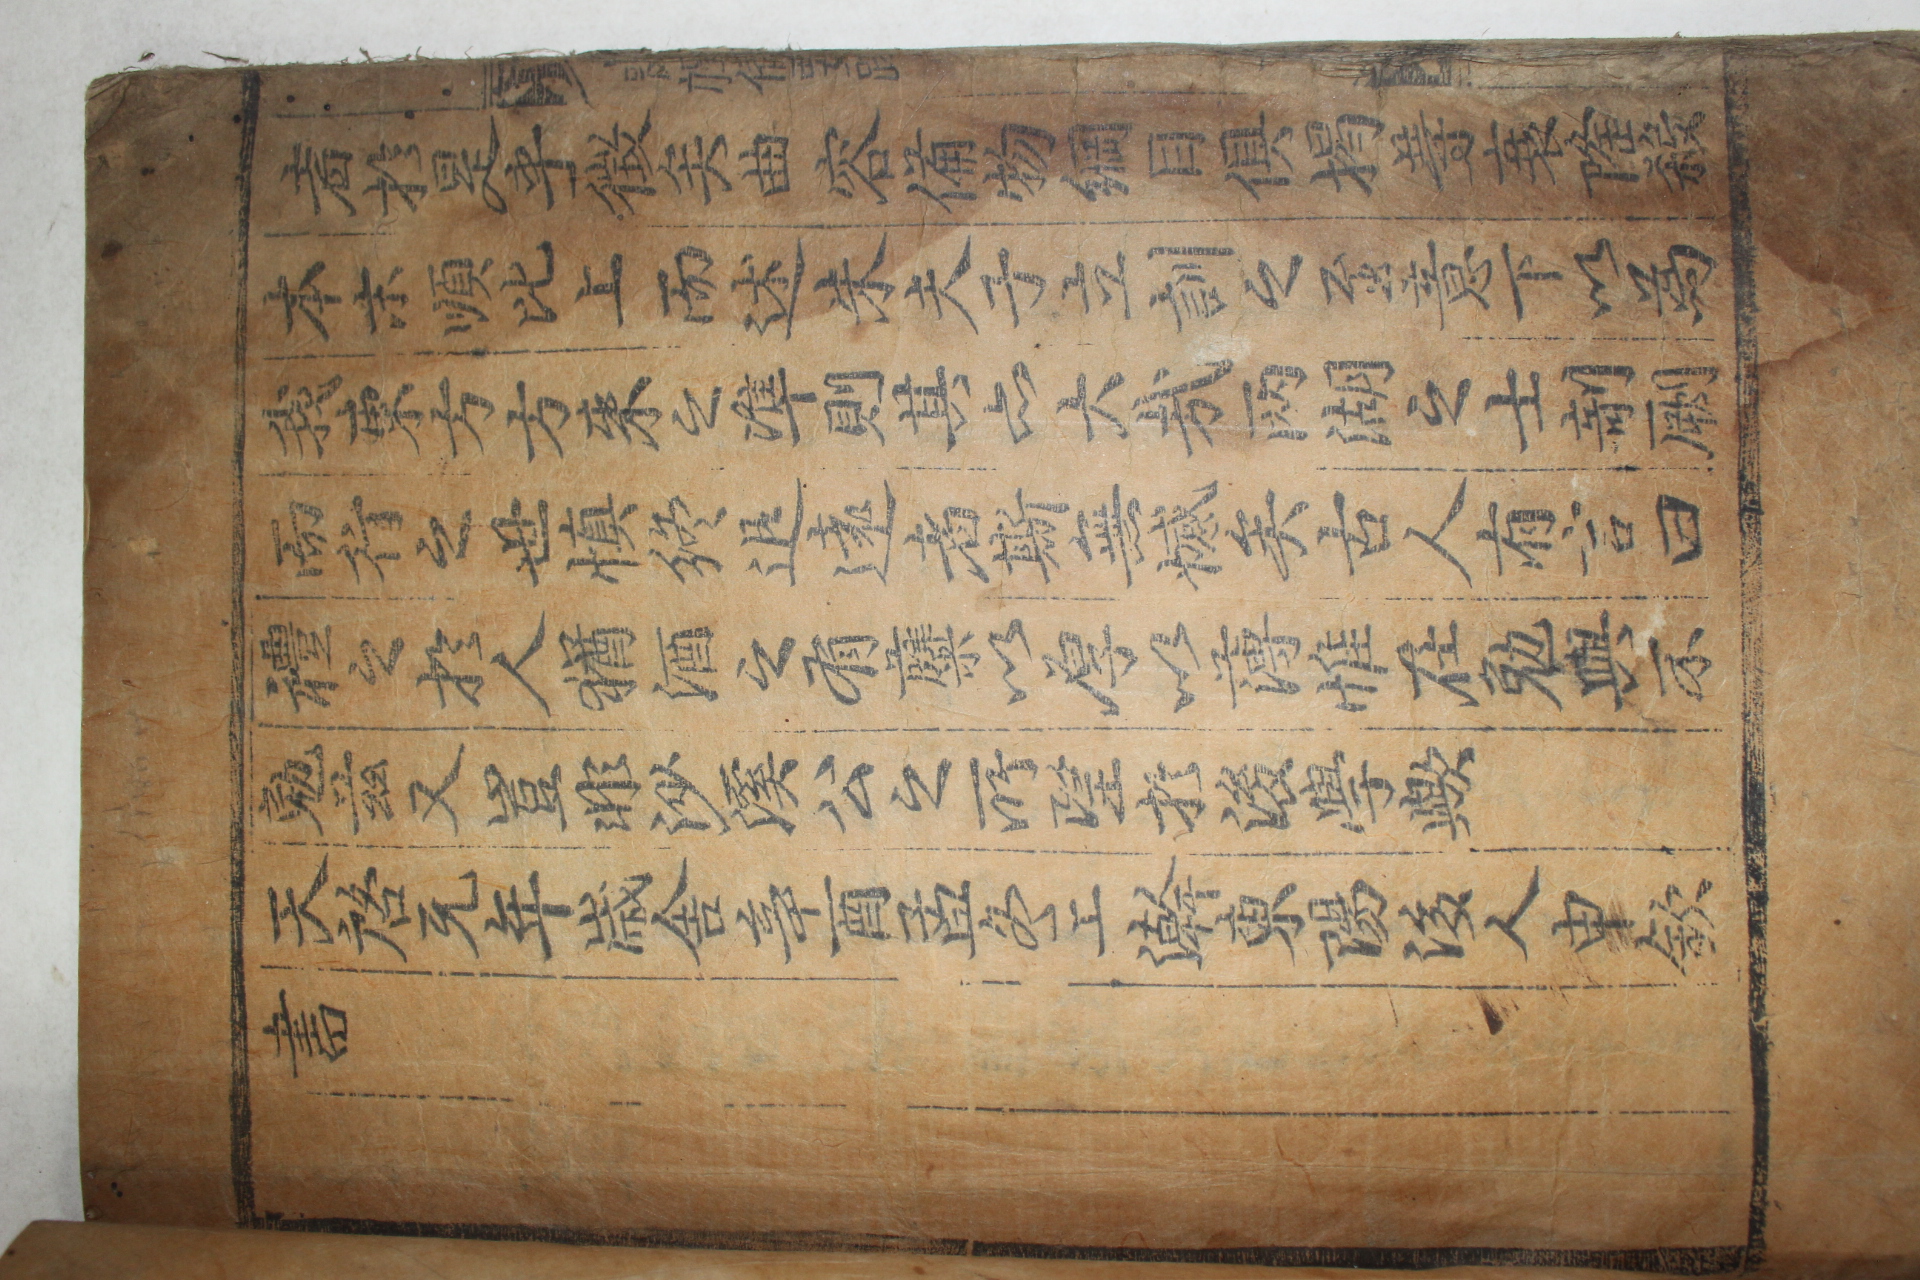 者於是乎徵矣曲容備物綱目俱揭等衰隆殺
本末順比上而述朱夫子立訓之至意下以為
我東方方來之準則其亦大哉兩湖之士剞劂
而行之世慎終追遠者斯無憾矣古人有言曰
禮之於人猶酒之有糵以厚以薄惟在勉與不
勉茲又豈非沙溪公之所望於後學歟
天啓元年歲舍辛酉孟冬上澣東陽後人申欽
書